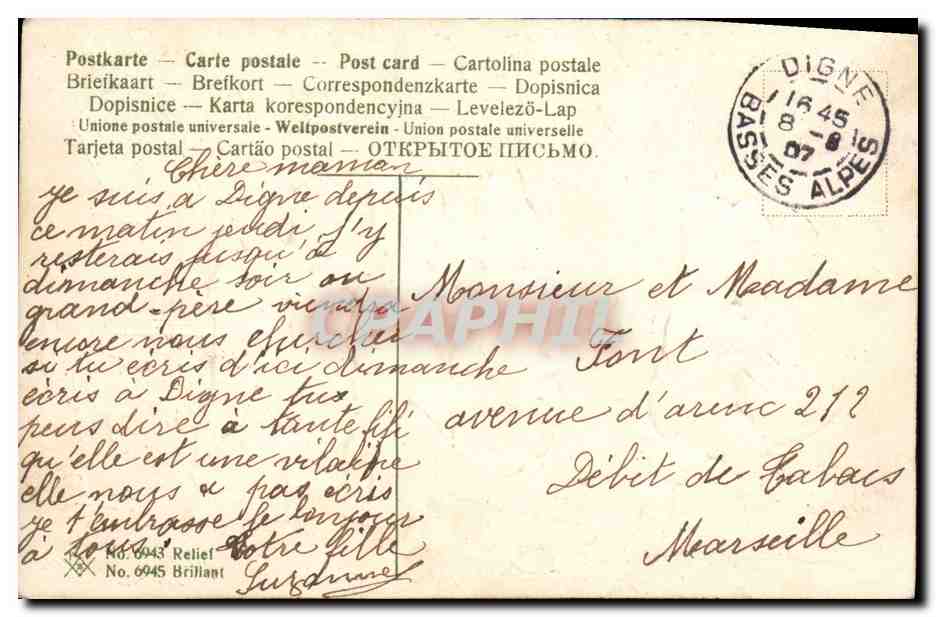 Postkarte — Carte postale — Post card — Cartolina postale
Briefkaart — Brefkort — Correspondenzkarte — Dopisnica
Dopisnice — Karta korespondencyjna — Levelező-Lap
Unione postale universale - Weltpostverein - Union postale universelle
Tarjeta postal — Cartão postal — ОТКРЫТОЕ ПИСЬМО.
DIGNE
16 45
8 - 8
07
BASSES ALPES
Chère maman
je suis a Digne depuis
ce matin jeudi j'y
resterais jusqu'à
dimanche soir ou
grand-père viendra
encore nous chercher
si tu écris d'ici dimanche
écris à Digne tu
peus dire à tante fifi
qu'elle est une vilaine
elle nous a pas écris
je t'embrasse le bonjour
à tous. Votre fille
Suzanne
Monsieur et Madame
Font
avenue d'arenc 212
Débit de Tabacs
Marseille
CPAPHIL
No. 6943 Relief
No. 6945 Brillant